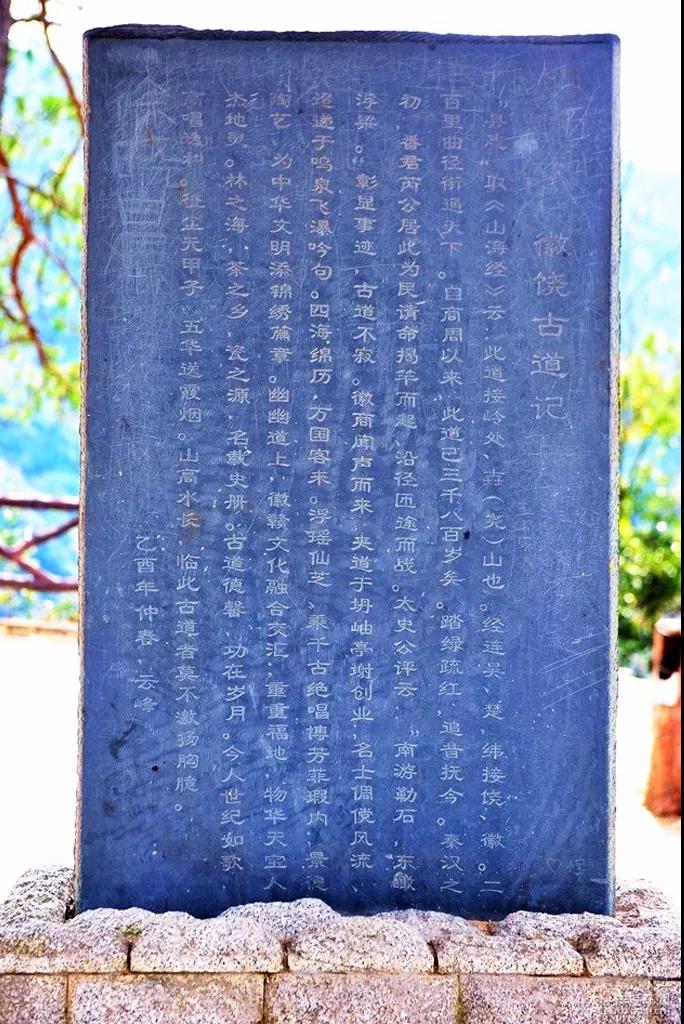 徽饶古道记
“县志”取《山海经》云，此道接岭处、垚（尧）山也。经连吴、楚，纬接饶、徽。二
百里曲径衔通天下。自商周以来，此道已三千八百岁矣。踏绿疏红，追昔抚今。秦汉之
初，番君芮公居此为民请命揭竿而起、沿径匝途而战。太史公评云，“南游勒石，东瞰
浮梁。”彰显事迹，古道不寂。徽商闻声而来，夹道于坍岫亭榭创业，名士倜傥风流、
迢递于鸣泉飞瀑吟句。四海绵历，万国客来。浮瑶仙芝、乘千古绝唱傅芳菲瑕内，景德
陶艺，为中华文明添锦绣篇章。幽幽道上，徽赣文化融合交汇，重重福地，物华天宝人
杰地灵。林之海、茶之乡，瓷之源，名载史册。古道德馨、功在岁月。今人世纪如歌
高唱 尘无甲子，五华送霞烟。山高水长，临此古道者莫不激扬胸臆。
乙酉年仲春、云峰